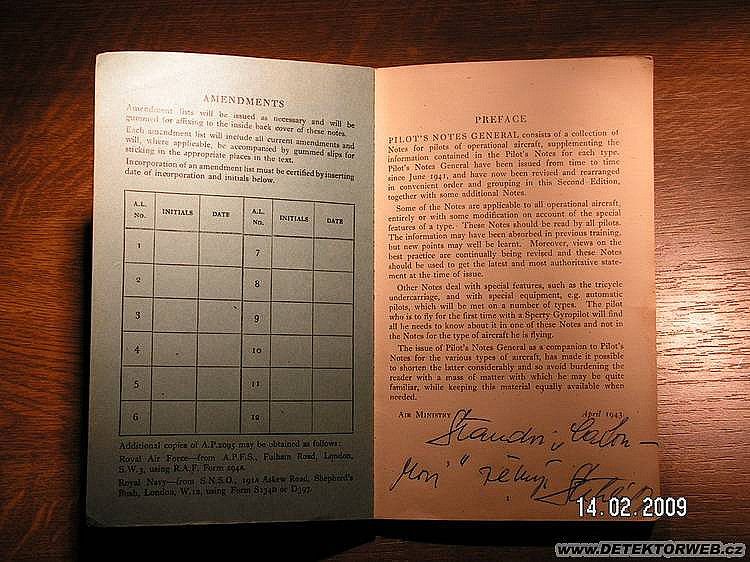 AMENDMENTS
Amendment lists will be issued as necessary and will be
gummed for affixing to the inside back cover of these notes.
Each amendment list will include all current amendments and
will, where applicable, be accompanied by gummed slips for
sticking in the appropriate places in the text.
Incorporation of an amendment list must be certified by inserting
date of incorporation and initials below.
A.L. No. INITIALS DATE A.L. No. INITIALS DATE
1 7
2 8
3 9
4 10
5 11
6 12
Additional copies of A.P.2095 may be obtained as follows:
Royal Air Force—from A.P.F.S., Fulham Road, London,
S.W.3, using R.A.F. Form 294A.
Royal Navy—from S.N.S.O., 191A Askew Road, Shepherd's
Bush, London, W.12, using Form S1340 or D397.
PREFACE
PILOT'S NOTES GENERAL consists of a collection of
Notes for pilots of operational aircraft, supplementing the
information contained in the Pilot's Notes for each type.
Pilot's Notes General have been issued from time to time
since June 1941, and have now been revised and rearranged
in convenient order and grouping in this Second Edition,
together with some additional Notes.
Some of the Notes are applicable to all operational aircraft,
entirely or with some modification on account of the special
features of a type. These Notes should be read by all pilots.
The information may have been absorbed in previous training,
but new points may well be learnt. Moreover, views on the
best practice are continually being revised and these Notes
should be used to get the latest and most authoritative state-
ment at the time of issue.
Other Notes deal with special features, such as the tricycle
undercarriage, and with special equipment, e.g. automatic
pilots, which will be met on a number of types. The pilot
who is to fly for the first time with a Sperry Gyropilot will find
all he needs to know about it in one of these Notes and not in
the Notes for the type of aircraft he is flying.
The issue of Pilot's Notes General as a companion to Pilot's
Notes for the various types of aircraft, has made it possible
to shorten the latter considerably and so avoid burdening the
reader with a mass of matter with which he may be quite
familiar, while keeping this material equally available when
needed.
AIR MINISTRY April 1943
1
14.02.2009
www.DETEKTORWEB.cz